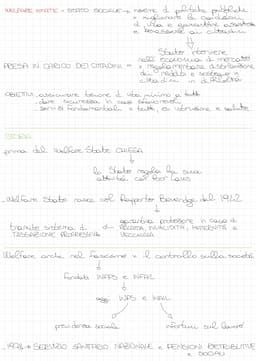 WELFARE STATE = STATO SOCIALE → insieme di politiche pubbliche
x migliorare le condizioni
vita e garantire assistenza
e benessere ai cittadini
Stato interviene
nell'economia di mercato
PRESA IN CARICO DEI CITTADINI = x regolamentare distribuzione
dei redditi e sostegno a
cittadini in difficoltà
OBIETTIVI: assicurare tenore di vita minimo a tutti
dare sicurezza in caso
servizi fondamentali x tutti, es istruzione e salute
STORIA
prima del Welfare State CHIESA
lo Stato regola la sua
attività con Poor Laws
Welfare State nasce col Rapporto Beveridge del 1942
garantire protezione in caso di
tramite sistema di MALATTIA, INVALIDITÀ, MATERNITÀ e
TASSAZIONE PROGRESSIVA VECCHIAIA
Welfare anche nel Fascismo x il controllo sulla società
fondati INFPS e INFAIL
oggi INPS e INAIL
previdenza sociale infortuni sul lavoro
1978 → SERVIZIO SANITARIO NAZIONALE e PENSIONI RETRIBUTIVE
e SOCIALI